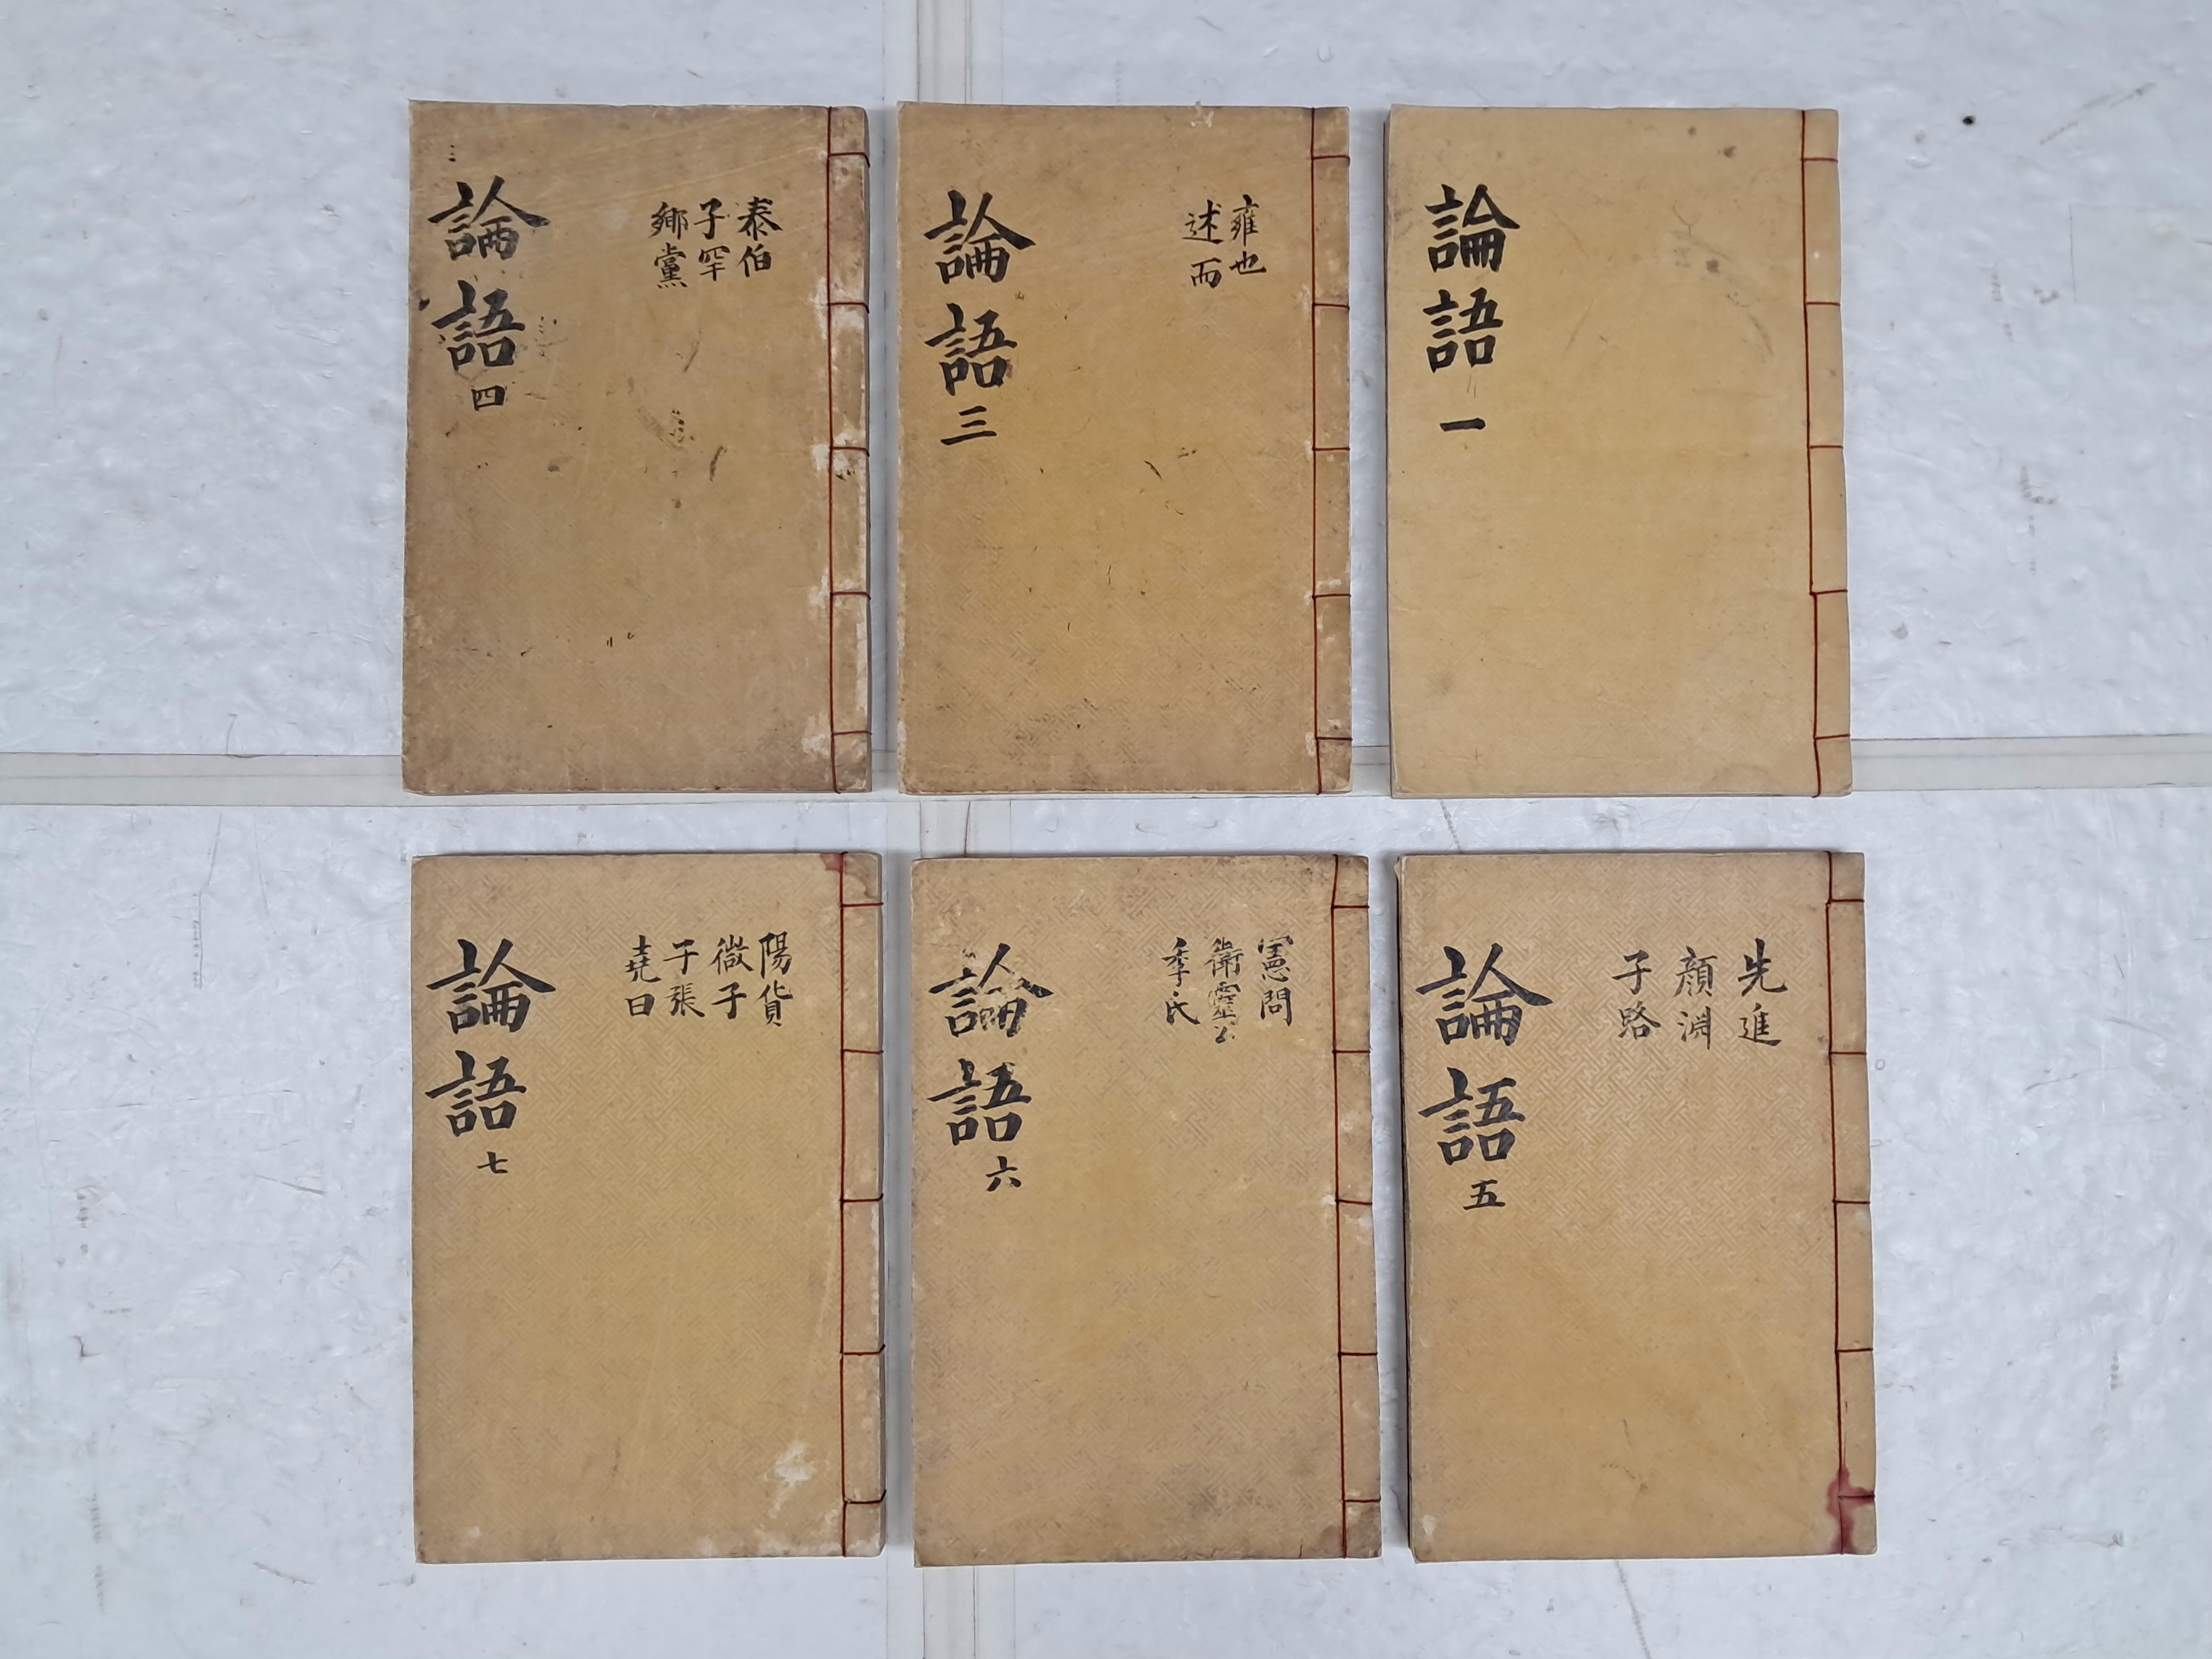 論語 一
雍也
述而
論語 三
泰伯
子罕
鄉黨
論語 四
先進
顔淵
子路
論語 五
憲問
衛靈公
季氏
論語 六
陽貨
微子
子張
堯曰
論語 七